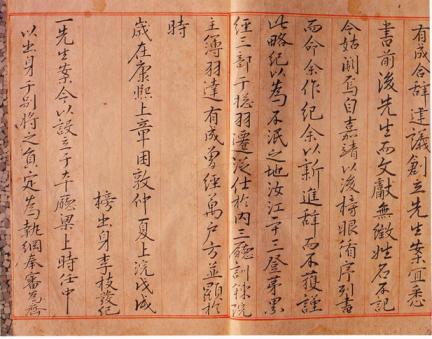 有成合辞建議創立先生案宜悉
書前後先生而文獻無徵姓名不記
今姑闕焉自嘉靖以後榜眼洧序列書
而命余作紀余以新進辞而不獲謹
此略紀以為不泯之地汝江二十三登茅累
經三部于穏羽遷從仕於内三廳訓錬院
主簿羽達有成曽經萬戶方並顯於
時
歳在康熙上章困敦仲夏上浣戊成
榜出身李枝發紀
一先生案今以設立于本廳梁上時任中
以出身于別將之負定為執綱奉審完齊